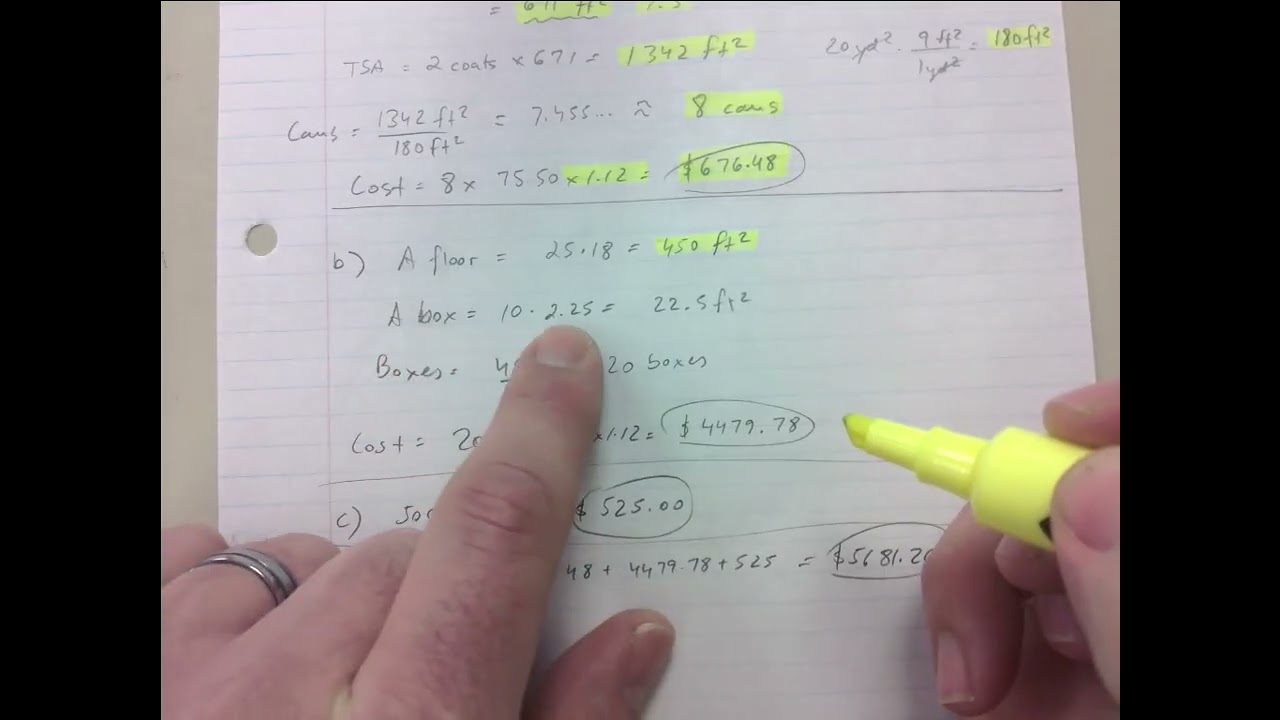 = 671 ft²
TSA = 2 coats × 671 = 1342 ft²
20 yd² · 9 ft²/1yd² = 180 ft²
Cans = 1342 ft²/180 ft² = 7.455... ≈ 8 cans
Cost = 8 × 75 50 × 1.12 = $676.48
b) A floor = 25·18 = 450 ft²
A box = 10 · 2.25 = 22.5 ft²
Boxes = 20 boxes
Cost = 20 ×1.12 = $4479.78
c) $525.00
48 + 4479.78 + 525 = $5681.26